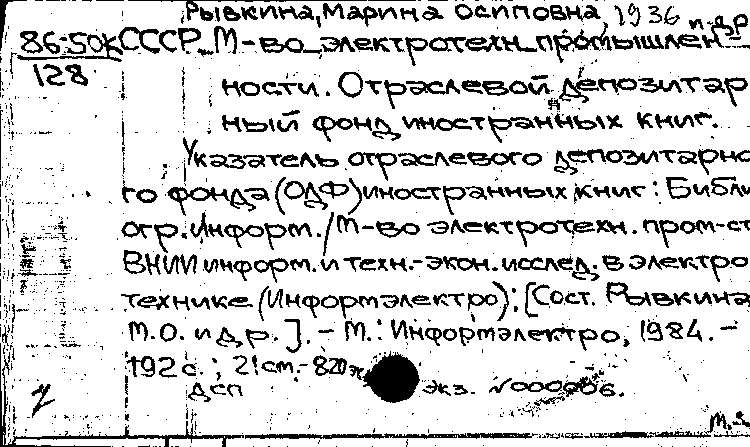 Рывкина, Марина Осиповна, 1936 и др
86:50к СССР. М-во электротехн. промышлен-
128
ности. Отраслевой депозитар
ный фонд иностранных книг.
Указатель отраслевого депозитарно
го фонда (ОДФ) иностранных книг: Библи
огр. Информ. / М-во электротехн. пром-ст
ВНИИ информ. и техн.-экон. исслед. в электро
технике (Информэлектро); [Сост. Рывкина
М.О. и др.]. - М.: Информэлектро, 1984. -
192 с.; 21 см. - 820 эк
ДСП экз. №000006.